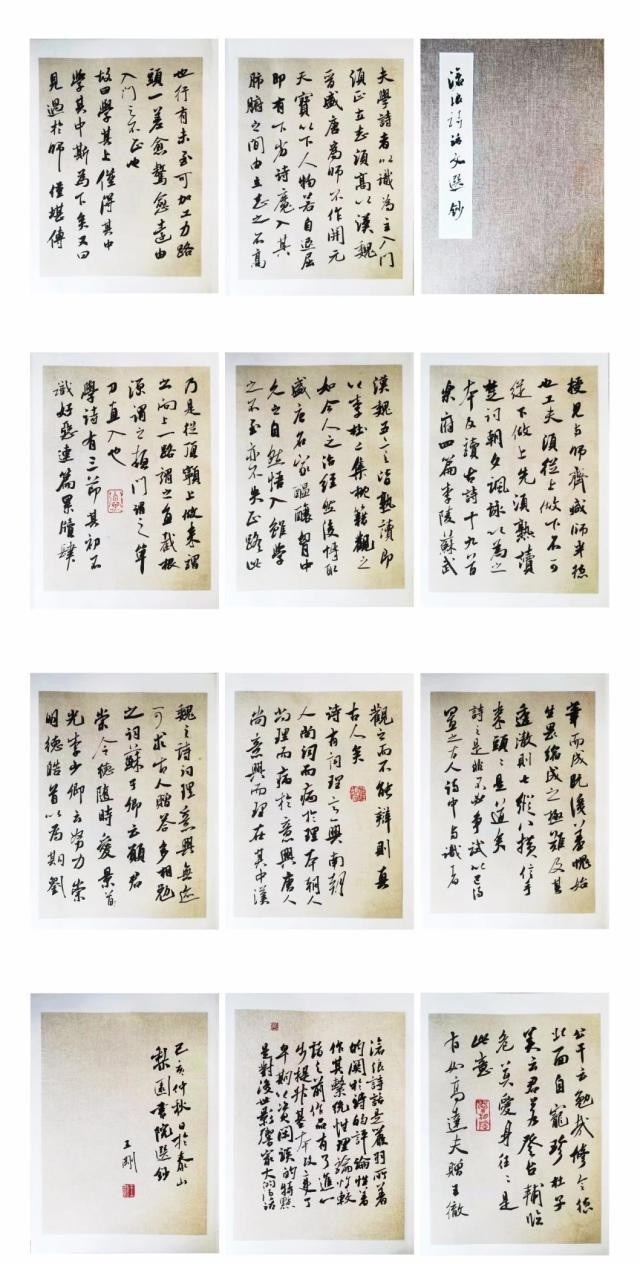 滄浪詩話文選鈔
夫學詩者以識為主入門
須正立志須高以漢魏
晉盛唐為師不作開元
天寶以下人物若自退屈
即有下劣詩魔入其
肺腑之間由立志之不高
也行有未至可加工力路
頭一差愈騖愈遠由
入門之不正也
故曰學其上僅得其中
學其中斯為下矣又曰
見過於師僅堪傳
授見與師齊減師半德
也工夫須從上做下不可
從下做上先須熟讀
楚詞朝夕諷詠以為之
本及讀古詩十九首
樂府四篇李陵蘇武
漢魏五言皆熟讀即
以李杜二集枕籍觀之
如今人之治經然後博取
盛唐名家醞釀胸中
久之自然悟入雖學
之不至亦不失正路此
乃是從頂𩕳上做來謂
之向上一路謂之直截根
源謂之頓門謂之單
刀直入也
學詩有三節其初不
識好惡連篇累牘肆
筆而成既識羞愧始
生畏縮成之極難及其
透徹則七縱八橫信手
拈來頭々是道矣
詩之是非不必爭試以己詩
置之古人詩中與識者
觀之而不能辨則真
古人矣
詩有詞理意興南朝
人尚詞而病於理本朝人
尚理而病於意興唐人
尚意興而理在其中漢
魏之詩詞理意興無迹
可求古人贈答多相勉
之詞蘇子卿云願君
崇令德隨時愛景
光李少卿云努力崇
明德皓首以為期劉
公幹云勉哉修令德
北面自寵珍杜子
美云君若登台輔臨
危莫愛身往々是
此意
有如高達夫贈王徹
滄浪詩話是嚴羽所著
的關於詩的評論性著
作其繫統性理論性較
諸之前作品有了進一
步提升基本改變了
早期以資閑談的特點
是對後世影響最大的詩話
己亥仲秋日於泰山
梨園書院選鈔
王剛